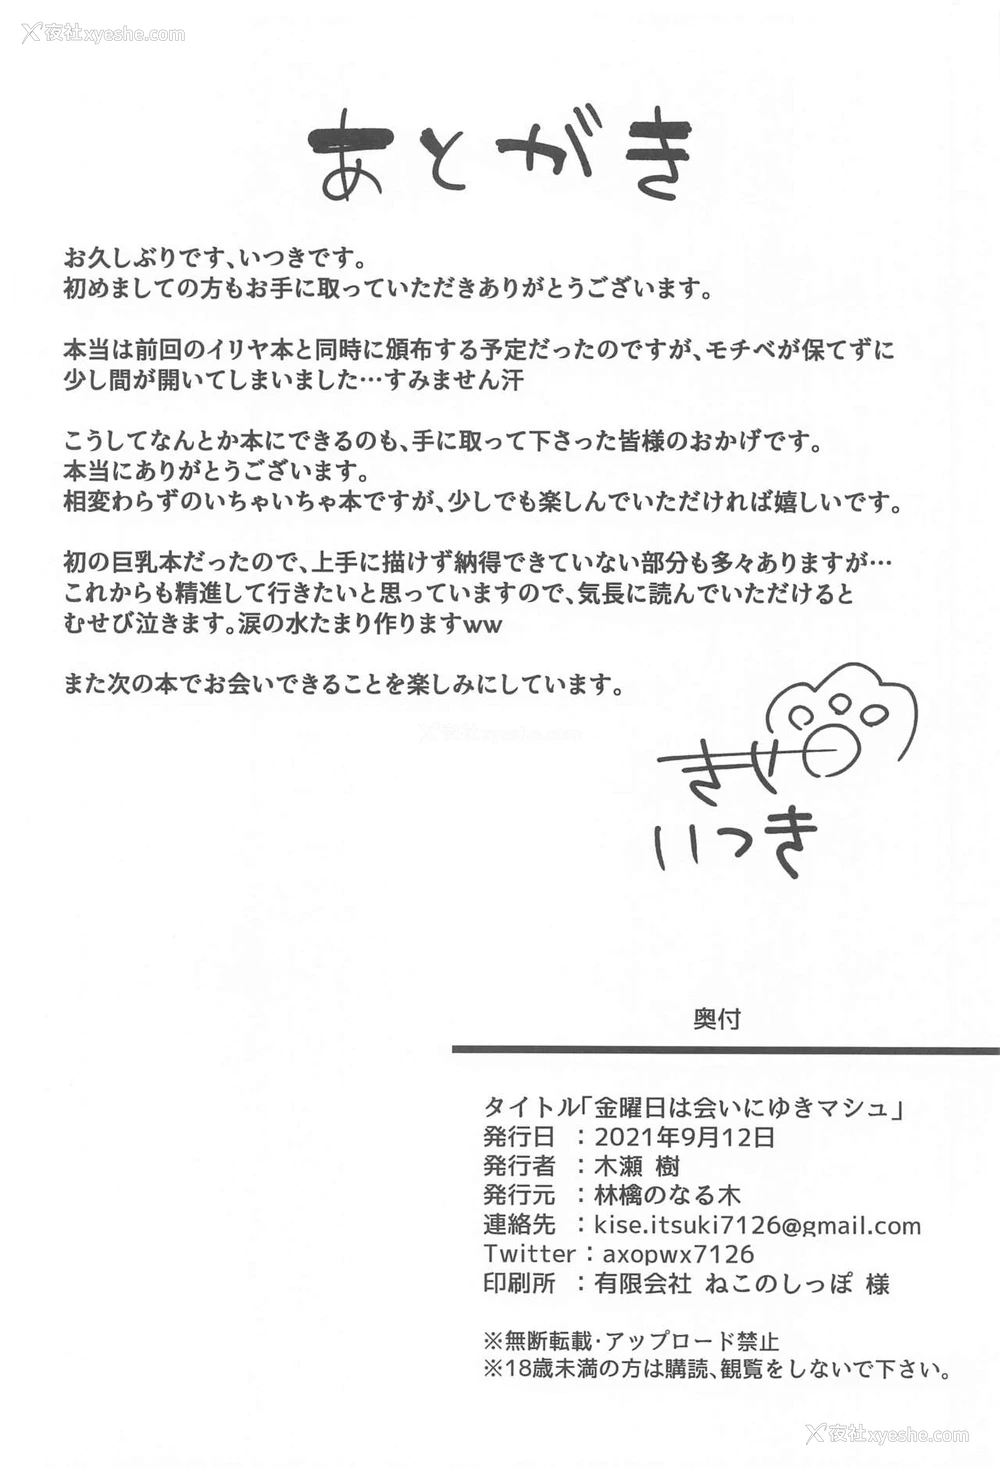 夜社xyeshe.com
あとがき
お久しぶりです、いつきです。
初めましての方もお手に取っていただきありがとうございます。
本当は前回のイリヤ本と同時に頒布する予定だったのですが、モチベが保てずに
少し間が開いてしまいました…すみません汗
こうしてなんとか本にできるのも、手に取って下さった皆様のおかげです。
本当にありがとうございます。
相変わらずのいちゃいちゃ本ですが、少しでも楽しんでいただければ嬉しいです。
初の巨乳本だったので、上手に描けず納得できていない部分も多々ありますが…
これからも精進して行きたいと思っていますので、気長に読んでいただけると
むせび泣きます。涙の水たまり作りますww
また次の本でお会いできることを楽しみにしています。
夜社xyeshe.com
いつき
奥付
タイトル「金曜日は会いにゆきマシュ」
発行日 ：2021年9月12日
発行者 ：木瀬 樹
発行元 ：林檎のなる木
連絡先 ：kise.itsuki7126@gmail.com
Twitter：axopwx7126
印刷所 ：有限会社 ねこのしっぽ 様
※無断転載・アップロード禁止
※18歳未満の方は購読、観覧をしないで下さい。
夜社xyeshe.com